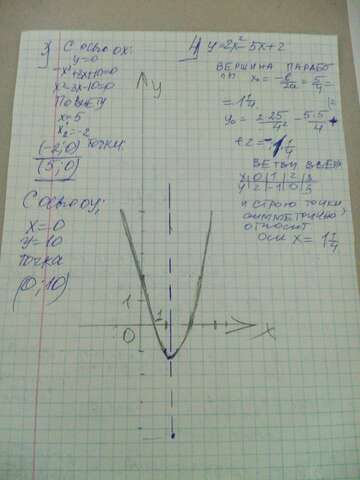 3) С осью ох:
y=0
-x²+3x+10=0
x²-3x-10=0
По Виету
x=5
x₂=-2
точки:
(-2;0)
(5;0)
С осью оу:
x=0
y=10
точка
(0;10)
4) y=2x²-5x+2
ВЕРШИНА ПАРАБОЛЫ x₀=-b/2a=5/4=
=1 1/4
y₀=2·25/4²-5·5/4+
+2=-1 1/4
ВЕТВИ ВВЕРХ
x 0 1 2 3
y 2 -1 0 5
и строю точки
симметрично
относит
оси x=1 1/4
y
1
1
0
x